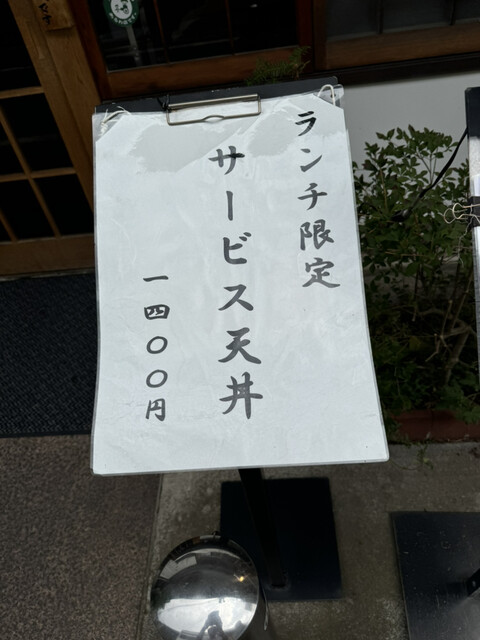 ランチ限定
サービス天丼
一四〇〇円